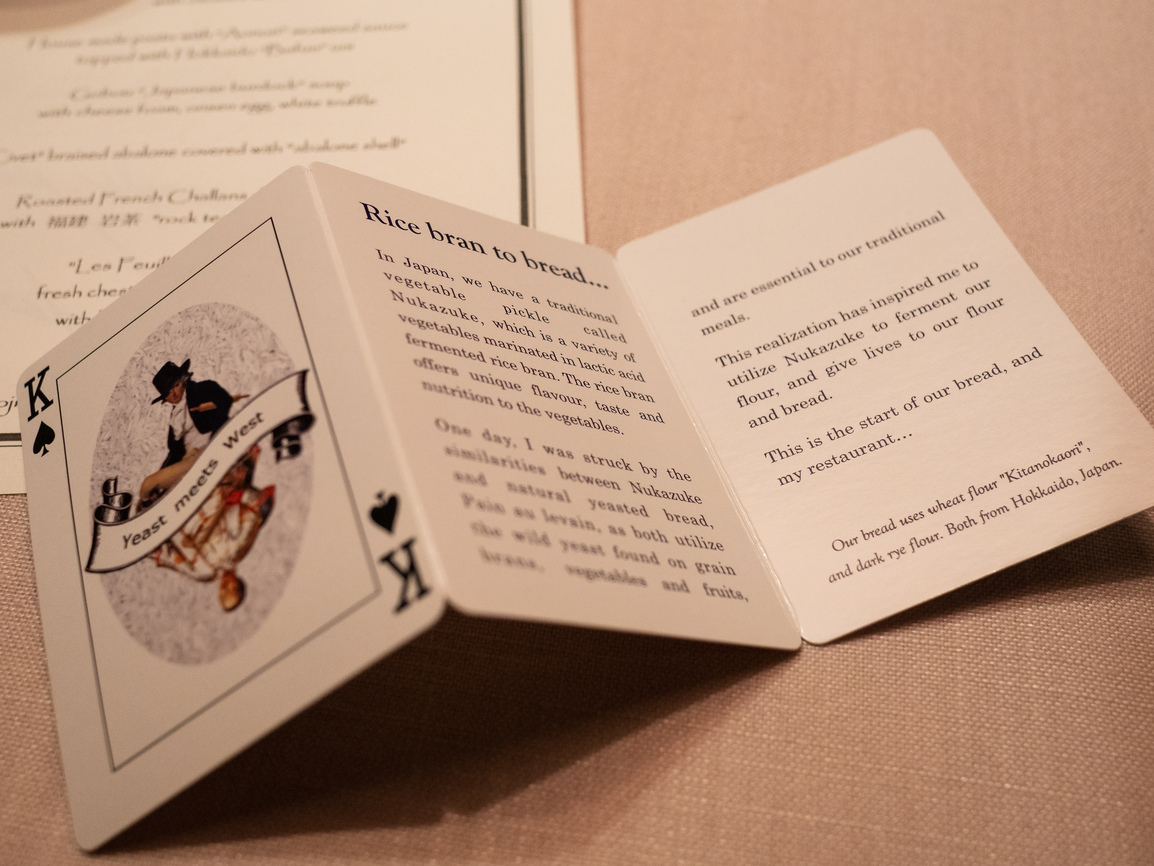 topped with Hokkaido
"Japanese burdock" soup
with cheese foam, onsen egg, white truffle
brained abalone covered with "abalone shell"
Roasted French Challans
with 福建 岩茶 "rock te
"Les Feuil
fresh ches
with
K
Yeast meets West
K
Rice bran to bread...
In Japan, we have a traditional
vegetable pickle called
Nukazuke, which is a variety of
vegetables marinated in lactic acid
fermented rice bran. The rice bran
offers unique flavour, taste and
nutrition to the vegetables.
One day, I was struck by the
similarities between Nukazuke
and natural yeasted bread,
Pain au levain, as both utilize
the wild yeast found on grain
brans, vegetables and fruits,
and are essential to our traditional
meals.
This realization has inspired me to
utilize Nukazuke to ferment our
flour, and give lives to our flour
and bread.
This is the start of our bread, and
my restaurant...
Our bread uses wheat flour "Kitanokaori",
and dark rye flour. Both from Hokkaido, Japan.